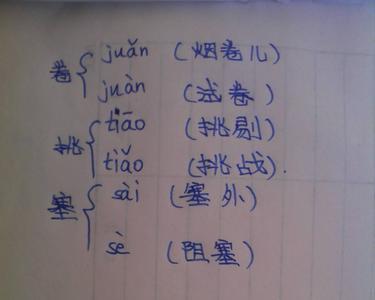 卷 juǎn (烟卷儿)
juàn (试卷)
挑 tiāo (挑剔)
tiǎo (挑战).
塞 sài (塞外)
sè (阻塞)